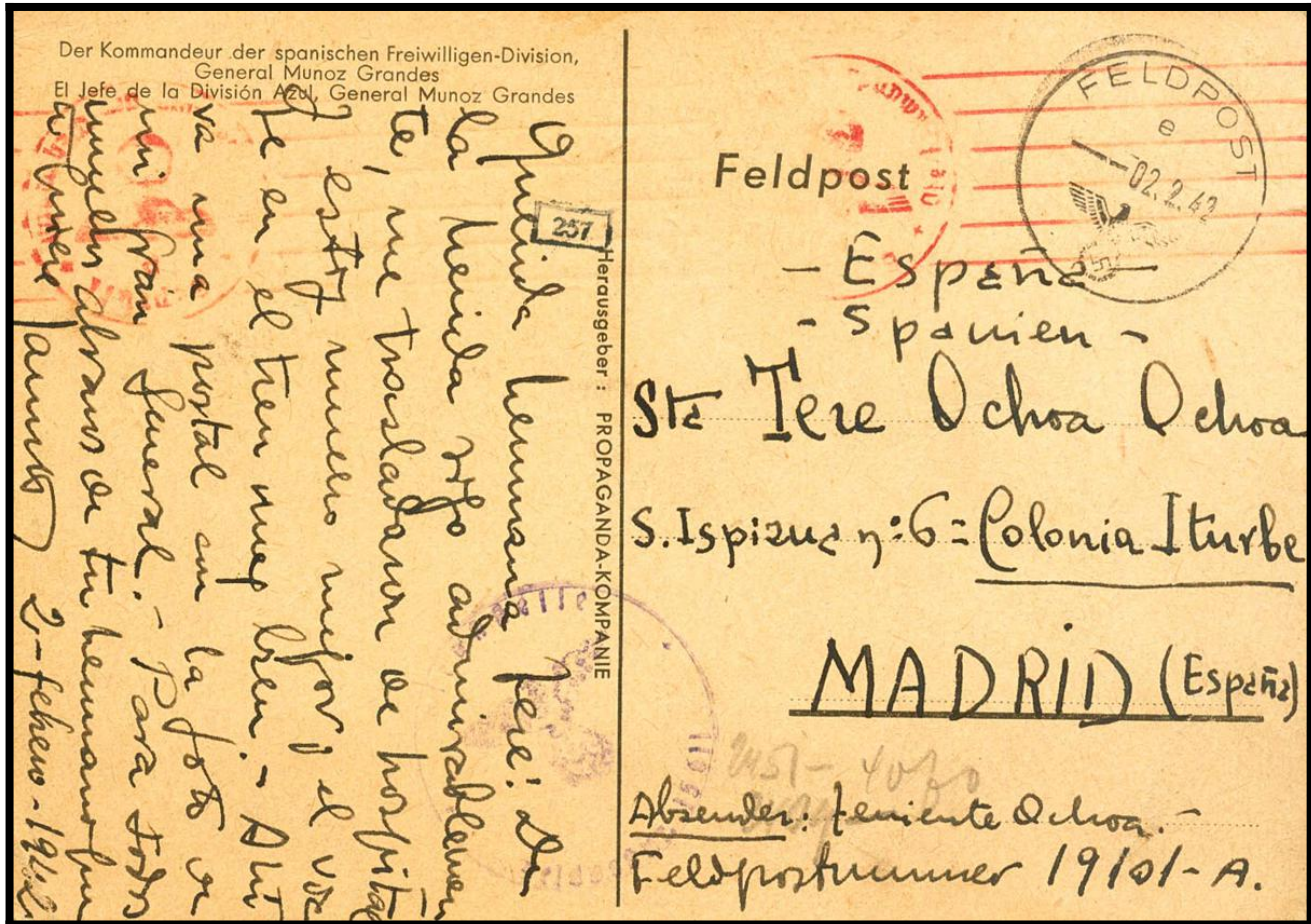 Der Kommandeur der spanischen Freiwilligen-Division,
General Munoz Grandes
El Jefe de la División Azul, General Munoz Grandes
Querida hermana Tere: De
la herida sigo admirablemen
te, me trasladaron de hospital
y estoy mucho mejor y el via
je en el tren muy bien. - Ahí
va una postal con la foto de
mi gran General. - Para todos
muchos abrazos de tu hermano que
2-febrero-1942
257
Herausgeber: PROPAGANDA-KOMPANIE
Feldpost
FELDPOST
e
02.2.42
- España -
- Spanien -
Sta Tere Ochoa Ochoa
S. Ispizua nº: 6 = Colonia Iturbe
MADRID (España)
Absender: Teniente Ochoa. -
Feldpostnummer 19101-A.